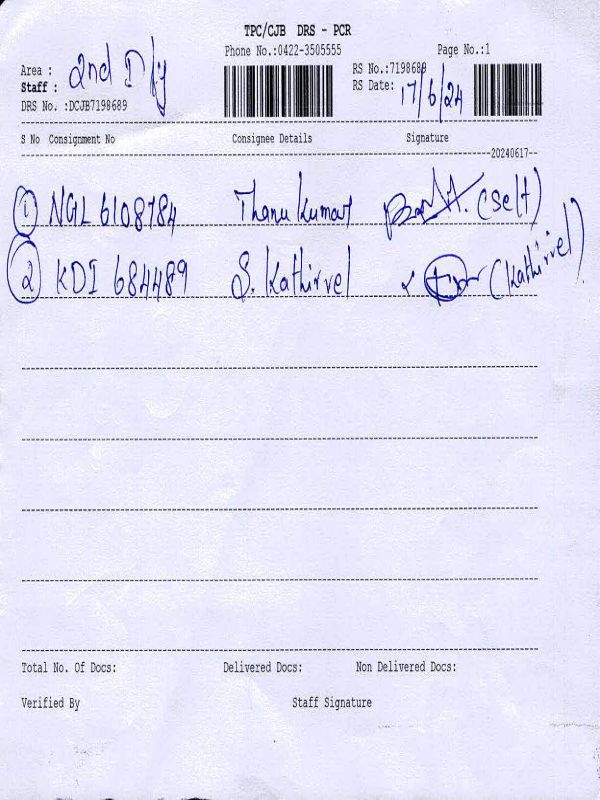 TPC/CJB DRS - PCR
Phone No.:0422-3505555 Page No.:1
Area : 2nd Dly RS No.:7198689
Staff : RS Date: 17/6/24
DRS No. :DCJB7198689
S No Consignment No Consignee Details Signature
20240617
1 NGL 6108784 Thanu kumar (self)
2 KDI 684489 S. Kathirvel (Kathirvel)
Total No. Of Docs: Delivered Docs: Non Delivered Docs:
Verified By Staff Signature